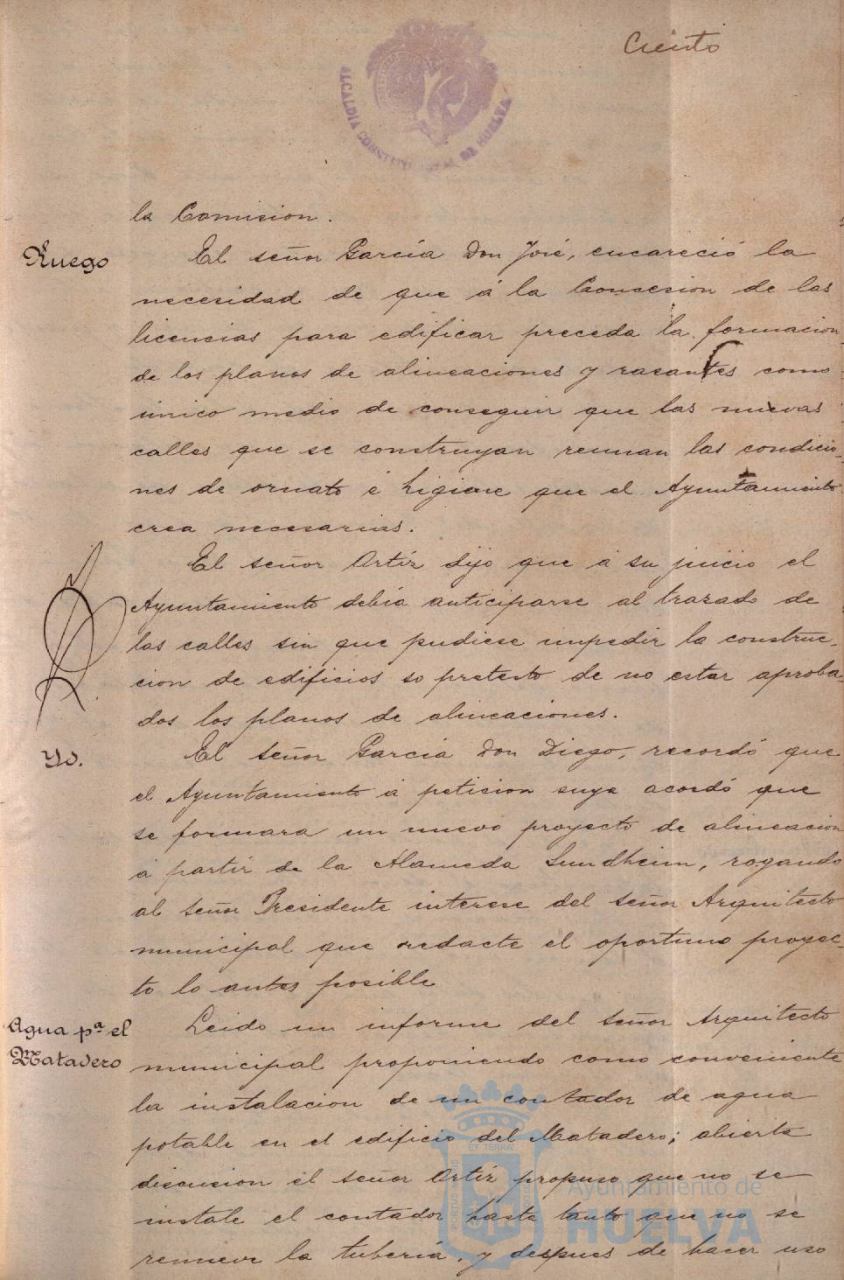 Ciento
ALCALDIA CONSTITUCIONAL DE HUELVA
la Comision.
Ruego
El señor García Don José, encareció la
necesidad de que á la Concesion de las
licencias para edificar preceda la formacion
de los planos de alineaciones y rasantes como
único medio de conseguir que las nuevas
calles que se construyan reunan las condicio-
nes de ornato é higiene que el Ayuntamiento
crea necesarias.
El señor Ortíz dijo que á su juicio el
Ayuntamiento debia anticiparse al trazado de
las calles sin que pudiese impedir la construc-
cion de edificios so pretesto de no estar aproba-
dos los planos de alineaciones.
Yd.
El señor García Don Diego, recordó que
el Ayuntamiento á peticion suya acordó que
se formara un nuevo proyecto de alineacion
á partir de la Alameda Sundheim, rogando
al señor Presidente interese del señor Arquitecto
municipal que redacte el oportuno proyec-
to lo antes posible
Agua pª el
Matadero
Leido un informe del señor Arquitecto
municipal proponiendo como conveniente
la instalacion de un contador de agua
potable en el edificio del Matadero; abierta
discusion el señor Ortíz propuso que no se
instale el contador hasta tanto que no se
renueve la tubería, y despues de hacer uso
Ayuntamiento de
HUELVA